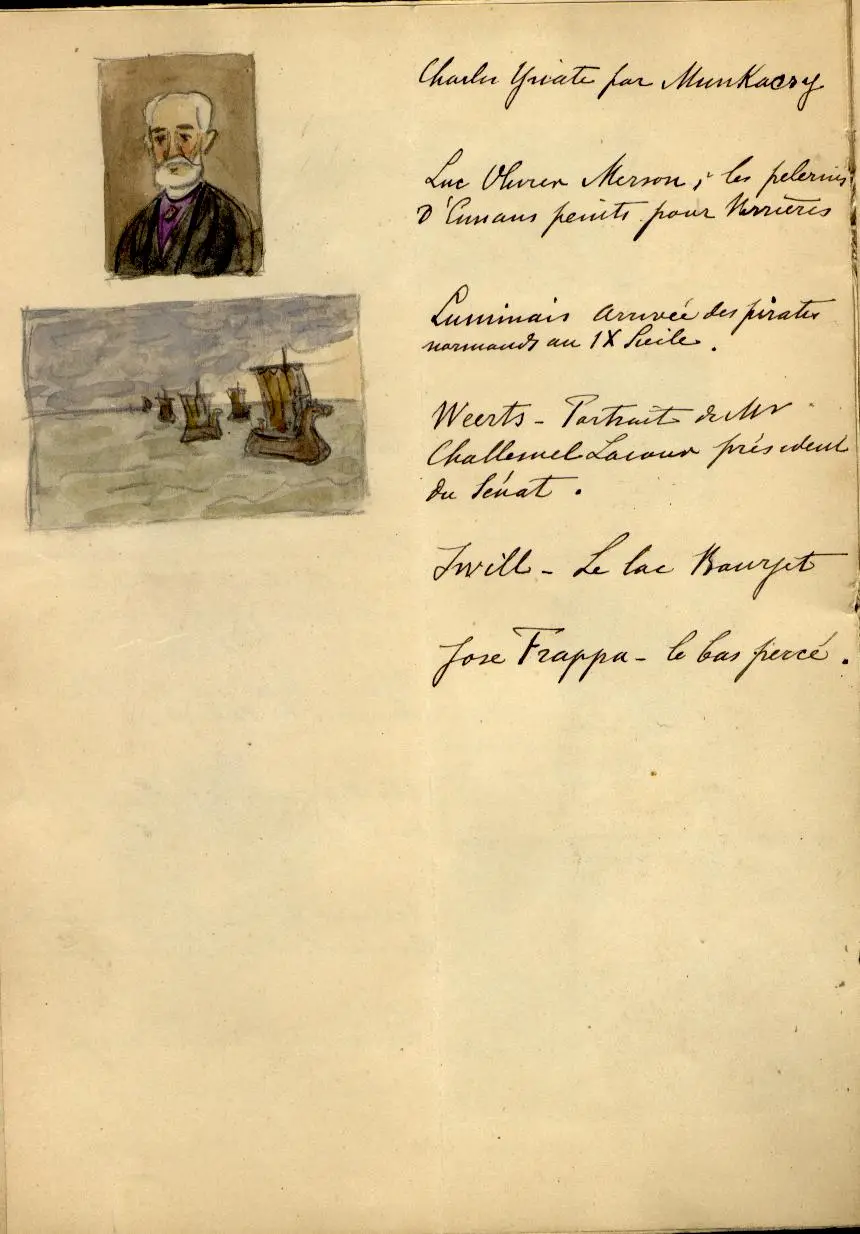 Charles Yriate par Munkacsy
Luc Olivier Merson, les pelerins
D'Emmaus peints pour Verrières
Luminais arrivée des pirates
normands au IX Siècle.
Weerts - Portrait de Mr
Challemel Lacour président
du Sénat.
Iwill - Le lac Bourget
Jose Frappa - le bas percé.